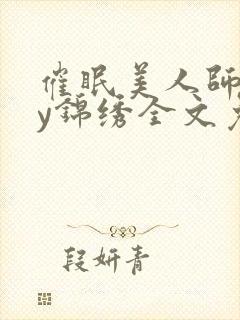 催眠美人師
y錦绣全文
段妍青